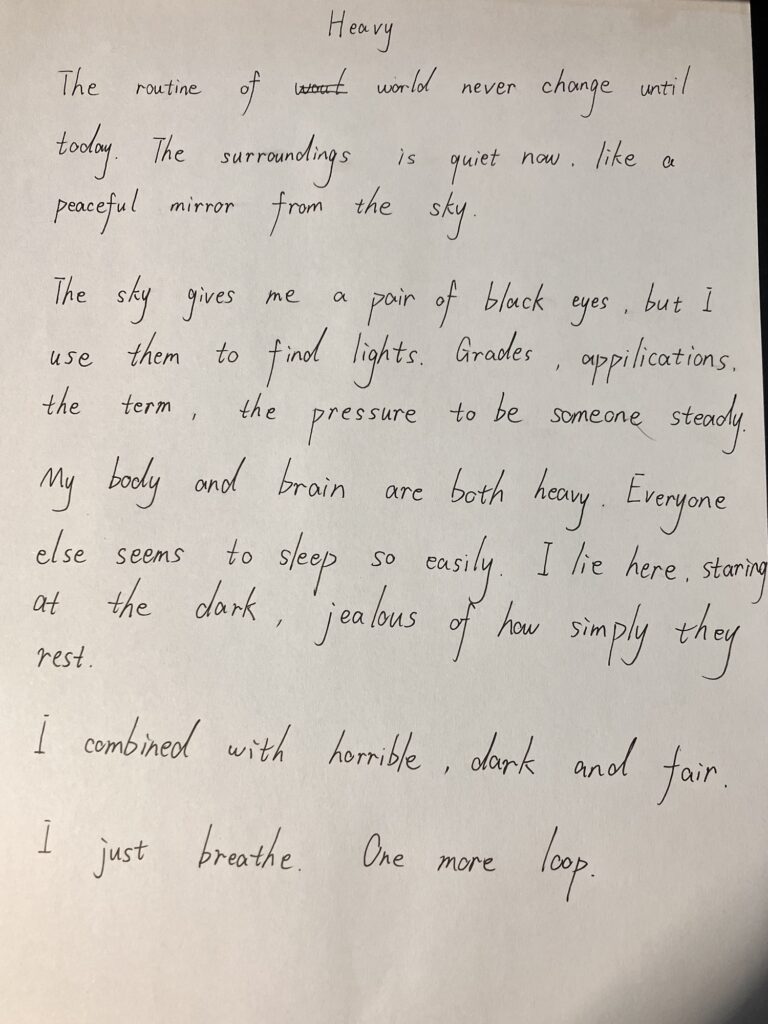 Heavy
The routine of world never change until
today. The surroundings is quiet now. like a
peaceful mirror from the sky.
The sky gives me a pair of black eyes, but I
use them to find lights. Grades, appilications,
the term, the pressure to be someone steady.
My body and brain are both heavy. Everyone
else seems to sleep so easily. I lie here, staring
at the dark, jealous of how simply they
rest.
I combined with horrible, dark and fair.
I just breathe. One more loop.